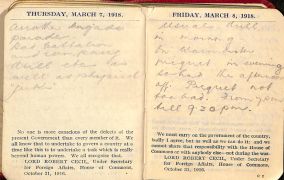 THURSDAY, MARCH 7, 1918.
Another brigade
under
Bat. Battalion
and Company
drill also
well as physical
No one is more conscious of the defects of the
present Government than every member of it. We
all know that to undertake to govern a country at a
time like this is to undertake a task which is really
beyond human powers. We all recognise that.
LORD ROBERT CECIL, Under Secretary
for Foreign Affairs, House of Commons,
October 31, 1916.
FRIDAY, MARCH 8, 1918.
Usual drill
in morning
in evening
so had the afternoon
off. Picquet not
so bad. From 5 pm
till 9.30 pm.
We must carry on the government of the country,
badly I agree, but as well as we can do it; and we
cannot share that responsibility with the House of
Commons or with anybody else—not during the war.
LORD ROBERT CECIL, Under Secretary
for Foreign Affairs, House of Commons,
October 31, 1916.